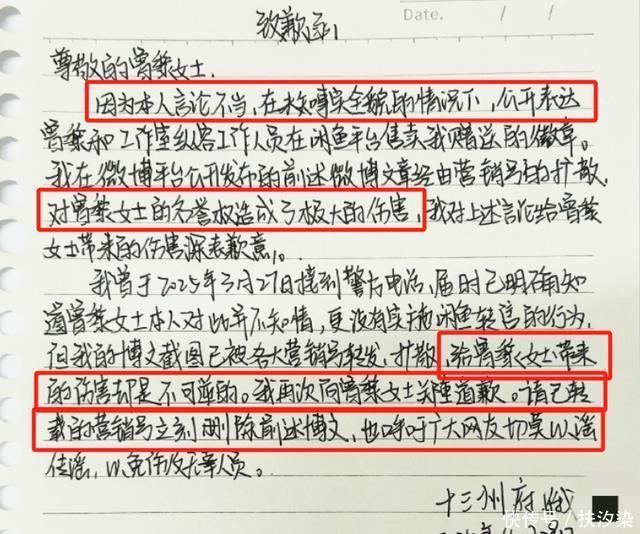 Date.
致歉函
尊敬的曾黎女士:
因为本人言论不当,在未知实全貌的情况下,公开表达
曾黎和工作室纵容工作人员在闲鱼平台售卖我赠送的徽章。
我在微博平台公开发布的前述微博文章经由营销号的扩散,
对曾黎女士的名誉权造成了极大的伤害,我对上述言论给曾黎
女士带来的伤害深表歉意。
我曾于2025年3月27日接到警方电话,届时已明确知
道曾黎女士本人对此并不知情,更没有实施闲鱼转售的行为,
但我的博文截图已被各大营销号转发、扩散,给曾黎女士带来
的伤害却是不可逆的。我再次向曾黎女士郑重道歉。请已转
载的营销号立刻删除前述博文,也呼吁广大网友切莫以谣
传谣,以免伤及无辜人员。
十三州府哦
快传号/扶汐染